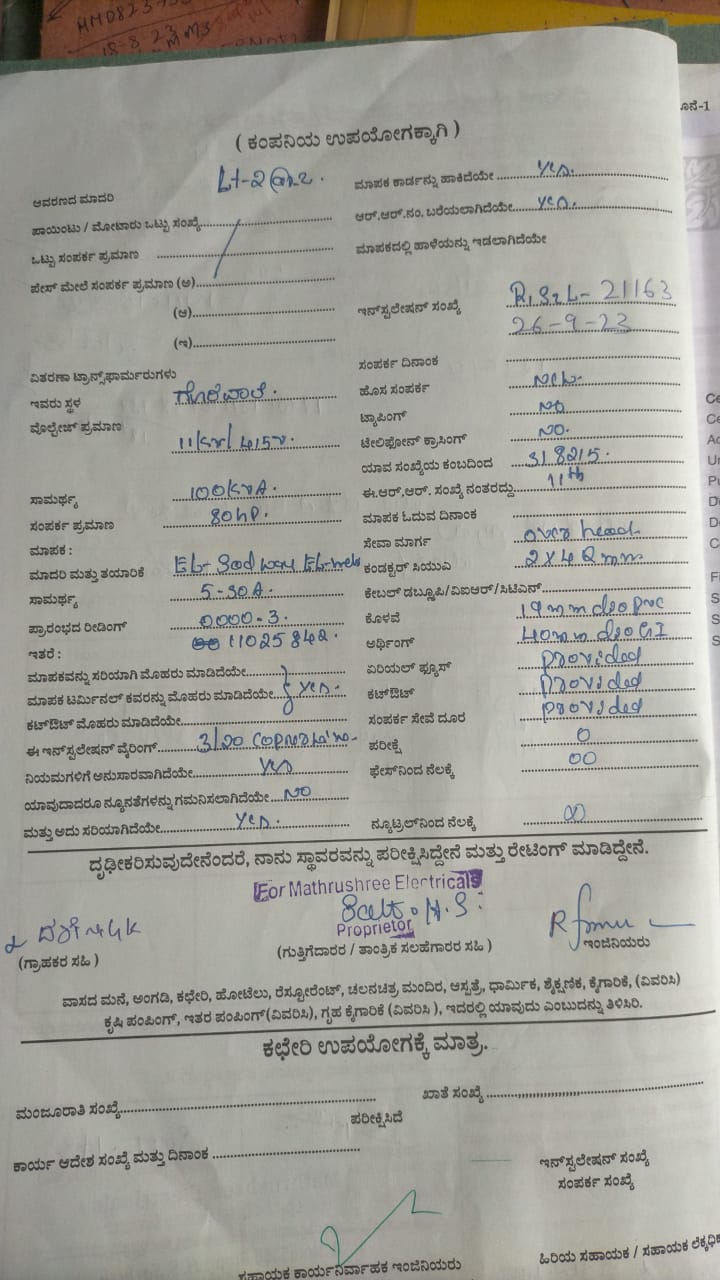 HMD823
18-8-23
ನೂನೆ-1
( ಕಂಪನಿಯ ಉಪಯೋಗಕ್ಕಾಗಿ )
ಆವರಣದ ಮಾದರಿ Lt-2
ಮಾಪಕ ಕಾರ್ಡನ್ನು ಹಾಕಿದೆಯೇ Yes.
ಪಾಯಿಂಟು / ಮೋಟಾರು ಒಟ್ಟು ಸಂಖ್ಯೆ
ಆರ್.ಆರ್.ನಂ. ಬರೆಯಲಾಗಿದೆಯೇ Yes.
ಒಟ್ಟು ಸಂಪರ್ಕ ಪ್ರಮಾಣ
ಮಾಪಕದಲ್ಲಿ ಹಾಳೆಯನ್ನು ಇಡಲಾಗಿದೆಯೇ
ಪೇಸ್ ಮೇಲೆ ಸಂಪರ್ಕ ಪ್ರಮಾಣ (ಅ)
(ಆ)
ಇನ್‌ಸ್ಟಲೇಷನ್ ಸಂಖ್ಯೆ 21163
26-9-23
(ಇ)
ಸಂಪರ್ಕ ದಿನಾಂಕ
ವಿತರಣಾ ಟ್ರಾನ್ಸ್‌ಫಾರ್ಮರುಗಳು
ಹೊಸ ಸಂಪರ್ಕ New.
ಇವರು ಸ್ಥಳ
ಟ್ಯಾಪಿಂಗ್ No
ವೋಲ್ಟೇಜ್ ಪ್ರಮಾಣ 11kv/415v.
ಟೆಲಿಫೋನ್ ಕ್ರಾಸಿಂಗ್ No.
ಯಾವ ಸಂಖ್ಯೆಯ ಕಂಬದಿಂದ 318215.
ಸಾಮರ್ಥ್ಯ 100kvA.
ಈ.ಆರ್.ಆರ್. ಸಂಖ್ಯೆ ನಂತರದ್ದು 11th
ಸಂಪರ್ಕ ಪ್ರಮಾಣ 80hp.
ಮಾಪಕ ಓದುವ ದಿನಾಂಕ
ಮಾಪಕ :
ಸೇವಾ ಮಾರ್ಗ over head.
ಮಾದರಿ ಮತ್ತು ತಯಾರಿಕೆ
ಕಂಡಕ್ಟರ್ ಸಿಯುಎ 2x4 mm
ಸಾಮರ್ಥ್ಯ 5-30A.
ಕೇಬಲ್ ಡಬ್ಲ್ಯೂಪಿ/ವಿಐಆರ್/ಸಿಟಿಎನ್
ಪ್ರಾರಂಭದ ರೀಡಿಂಗ್ 0000-3.
ಕೊಳವೆ 19mm dia pvc
ಇತರೆ : 11025842.
ಅರ್ಥಿಂಗ್ 40mm dia GI
ಮಾಪಕವನ್ನು ಸರಿಯಾಗಿ ಮೊಹರು ಮಾಡಿದೆಯೇ
ಏರಿಯಲ್ ಫ್ಯೂಸ್ provided
ಮಾಪಕ ಟರ್ಮಿನಲ್ ಕವರನ್ನು ಮೊಹರು ಮಾಡಿದೆಯೇ Yes.
ಕಟ್‌ಔಟ್ provided
ಕಟ್‌ಔಟ್ ಮೊಹರು ಮಾಡಿದೆಯೇ
ಸಂಪರ್ಕ ಸೇವೆ ದೂರ provided
ಈ ಇನ್‌ಸ್ಟಲೇಷನ್ ವೈರಿಂಗ್ 3/20
ಪರೀಕ್ಷೆ 0
ನಿಯಮಗಳಿಗೆ ಅನುಸಾರವಾಗಿದೆಯೇ Yes
ಫೇಸ್‌ನಿಂದ ನೆಲಕ್ಕೆ 00
ಯಾವುದಾದರೂ ನ್ಯೂನತೆಗಳನ್ನು ಗಮನಿಸಲಾಗಿದೆಯೇ No
ಮತ್ತು ಅದು ಸರಿಯಾಗಿದೆಯೇ Yes.
ನ್ಯೂಟ್ರಲ್‌ನಿಂದ ನೆಲಕ್ಕೆ 00
ದೃಢೀಕರಿಸುವುದೇನೆಂದರೆ, ನಾನು ಸ್ಥಾವರವನ್ನು ಪರೀಕ್ಷಿಸಿದ್ದೇನೆ ಮತ್ತು ರೇಟಿಂಗ್ ಮಾಡಿದ್ದೇನೆ.
For Mathrushree Electricals
Proprietor
(ಗ್ರಾಹಕರ ಸಹಿ )
(ಗುತ್ತಿಗೆದಾರರ / ತಾಂತ್ರಿಕ ಸಲಹೆಗಾರರ ಸಹಿ )
ಇಂಜಿನಿಯರು
ವಾಸದ ಮನೆ, ಅಂಗಡಿ, ಕಛೇರಿ, ಹೋಟೆಲು, ರೆಸ್ಟೋರೆಂಟ್, ಚಲನಚಿತ್ರ ಮಂದಿರ, ಆಸ್ಪತ್ರೆ, ಧಾರ್ಮಿಕ, ಶೈಕ್ಷಣಿಕ, ಕೈಗಾರಿಕೆ, (ವಿವರಿಸಿ)
ಕೃಷಿ ಪಂಪಿಂಗ್, ಇತರ ಪಂಪಿಂಗ್(ವಿವರಿಸಿ), ಗೃಹ ಕೈಗಾರಿಕೆ (ವಿವರಿಸಿ ), ಇದರಲ್ಲಿ ಯಾವುದು ಎಂಬುದನ್ನು ತಿಳಿಸಿರಿ.
ಕಛೇರಿ ಉಪಯೋಗಕ್ಕೆ ಮಾತ್ರ.
ಮಂಜೂರಾತಿ ಸಂಖ್ಯೆ
ಖಾತೆ ಸಂಖ್ಯೆ
ಪರೀಕ್ಷಿಸಿದೆ
ಕಾರ್ಯ ಆದೇಶ ಸಂಖ್ಯೆ ಮತ್ತು ದಿನಾಂಕ
ಇನ್‌ಸ್ಟಲೇಷನ್ ಸಂಖ್ಯೆ
ಸಂಪರ್ಕ ಸಂಖ್ಯೆ
ಸಹಾಯಕ ಕಾರ್ಯನಿರ್ವಾಹಕ ಇಂಜಿನಿಯರು
ಹಿರಿಯ ಸಹಾಯಕ / ಸಹಾಯಕ ಲೆಕ್ಕಾಧಿ